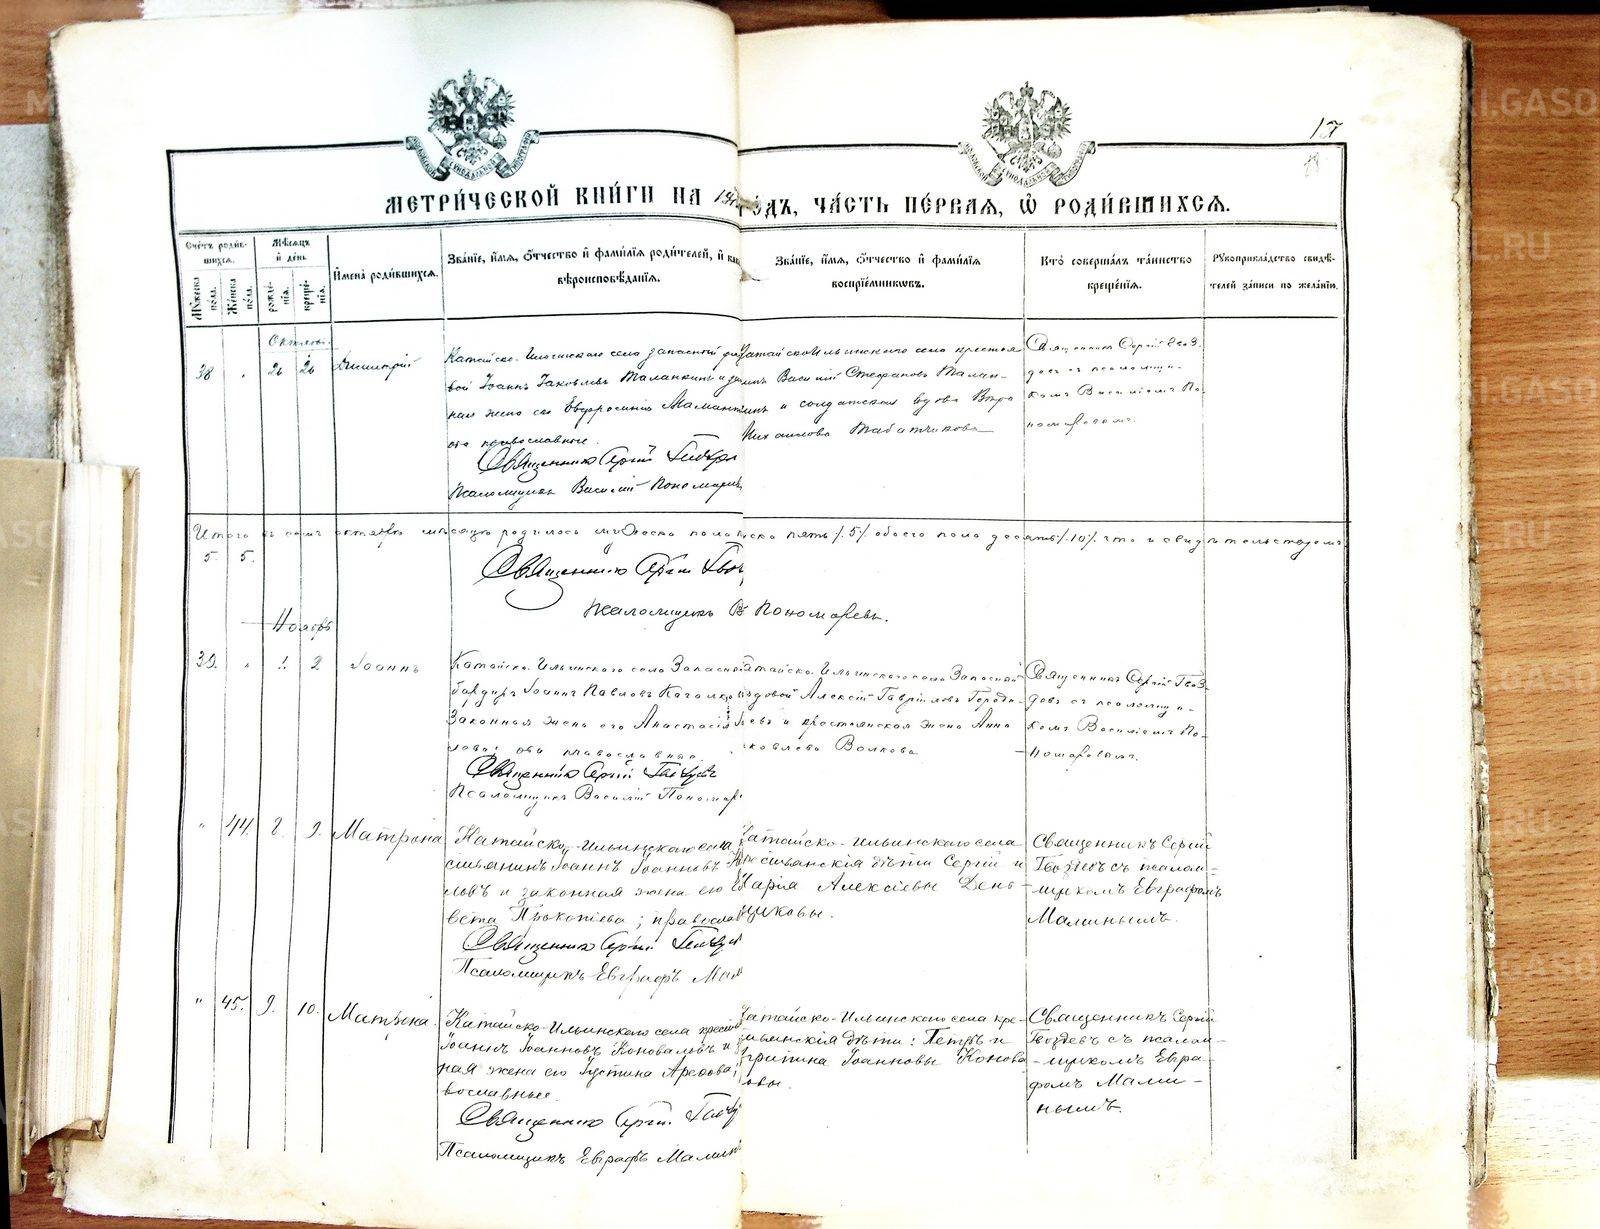 17
МЕТРИ́ЧЕСКОЙ КНИ́ГИ НА
ГО́ДЪ, ЧА́СТЬ ПЕ́РВАЯ, Ѡ РОДИ́ВШИХСЯ.
Сче́тъ роди́в-
шихся.
Мѣ́сяцъ
и́ де́нь
Мꙋ́жеска по́ла.
Же́нска по́ла.
рожде́-
нія.
креще́-
нія.
И҆мена̀ роди́вшихся.
Зва́ніе, и҆́мя, ѻ҆́тчество и҆ фами́лія роди́телей, и҆ как
вѣроисповѣ́данія.
Зва́ніе, и҆́мя, ѻ҆́тчество и҆ фами́лія
воспріе́мникѡвъ.
Кто̀ соверша́лъ та́инство
креще́нія.
Рꙋкоприкла́дство свидѣ́-
телей за́писи по жела́нію.
Октябрь.
38
26
26
Димитрій
Катайско-Ильинскаго села запасный
вой Іоаннъ Іаковлевъ Таланкинъ и
ная жена его Евфросинія
оба православные.
Священникъ Сергій Гвоздев
Псаломщикъ Василій Пономарев
Катайско-Ильинскаго села крестья
нинъ Василій Стефановъ Талан-
кинъ и солдатская вдова Вѣра
Михаилова Табатчикова
Священникъ Сергій Гвоз-
девъ съ псаломщи-
комъ Василіемъ По-
номаревымъ.
Итого въ семъ октябрѣ мѣсяцѣ родилось мужеска пола
женска пять /.5./ обоего пола десять /.10./ что и свидѣтельствуемъ
5. 5.
Священникъ Сергій Гвоз
Псаломщикъ В. Пономаревъ.
Ноябрь
39.
1.
2.
Іоаннъ
Катайско-Ильинского села Запасной
бардиръ Іоаннъ Павловъ
Законная жена его Анастасія
оба православные
Священникъ Сергій Гвоздевъ
Псаломщикъ Василій Пономар
Катайско-Ильинского села Запасной
рядовой Алексѣй Гавриловъ
и крестьянская жена Анна
Яковлева Волкова
Священникъ Сергій Гвоз-
девъ съ псаломщи-
комъ Василіемъ По-
номаревымъ.
"
44.
8.
9.
Матрона
Катайско-Ильинскаго села
стьянинъ Іоаннъ Іоанновъ
льевъ и законная жена его Ели
вета Прокопіева; правосла
Священникъ Сергій Гвозде
Псаломщикъ Евграфъ Мал
Катайско-Ильинскаго села
крестьянскія дѣти Сергій и
Марія Алексіевы День-
щиковы.
Священникъ Сергій
Гвоздевъ съ псалом-
щикомъ Евграфомъ
Малинымъ.
"
45.
9.
10.
Матрона
Катайско-Ильинскаго села крест
Іоаннъ Іоанновъ Коноваловъ и
ная жена его Іустина Арефова;
вославные
Священникъ Сергій Гвозд
Псаломщикъ Евграфъ Малин
Катайско-Ильинскаго села кре-
стьянскія дѣти: Петръ и
Іоанновы Конова
ловы.
Священникъ Сергій
Гвоздевъ съ псалом-
щикомъ Евгра-
фомъ Мали-
нымъ.